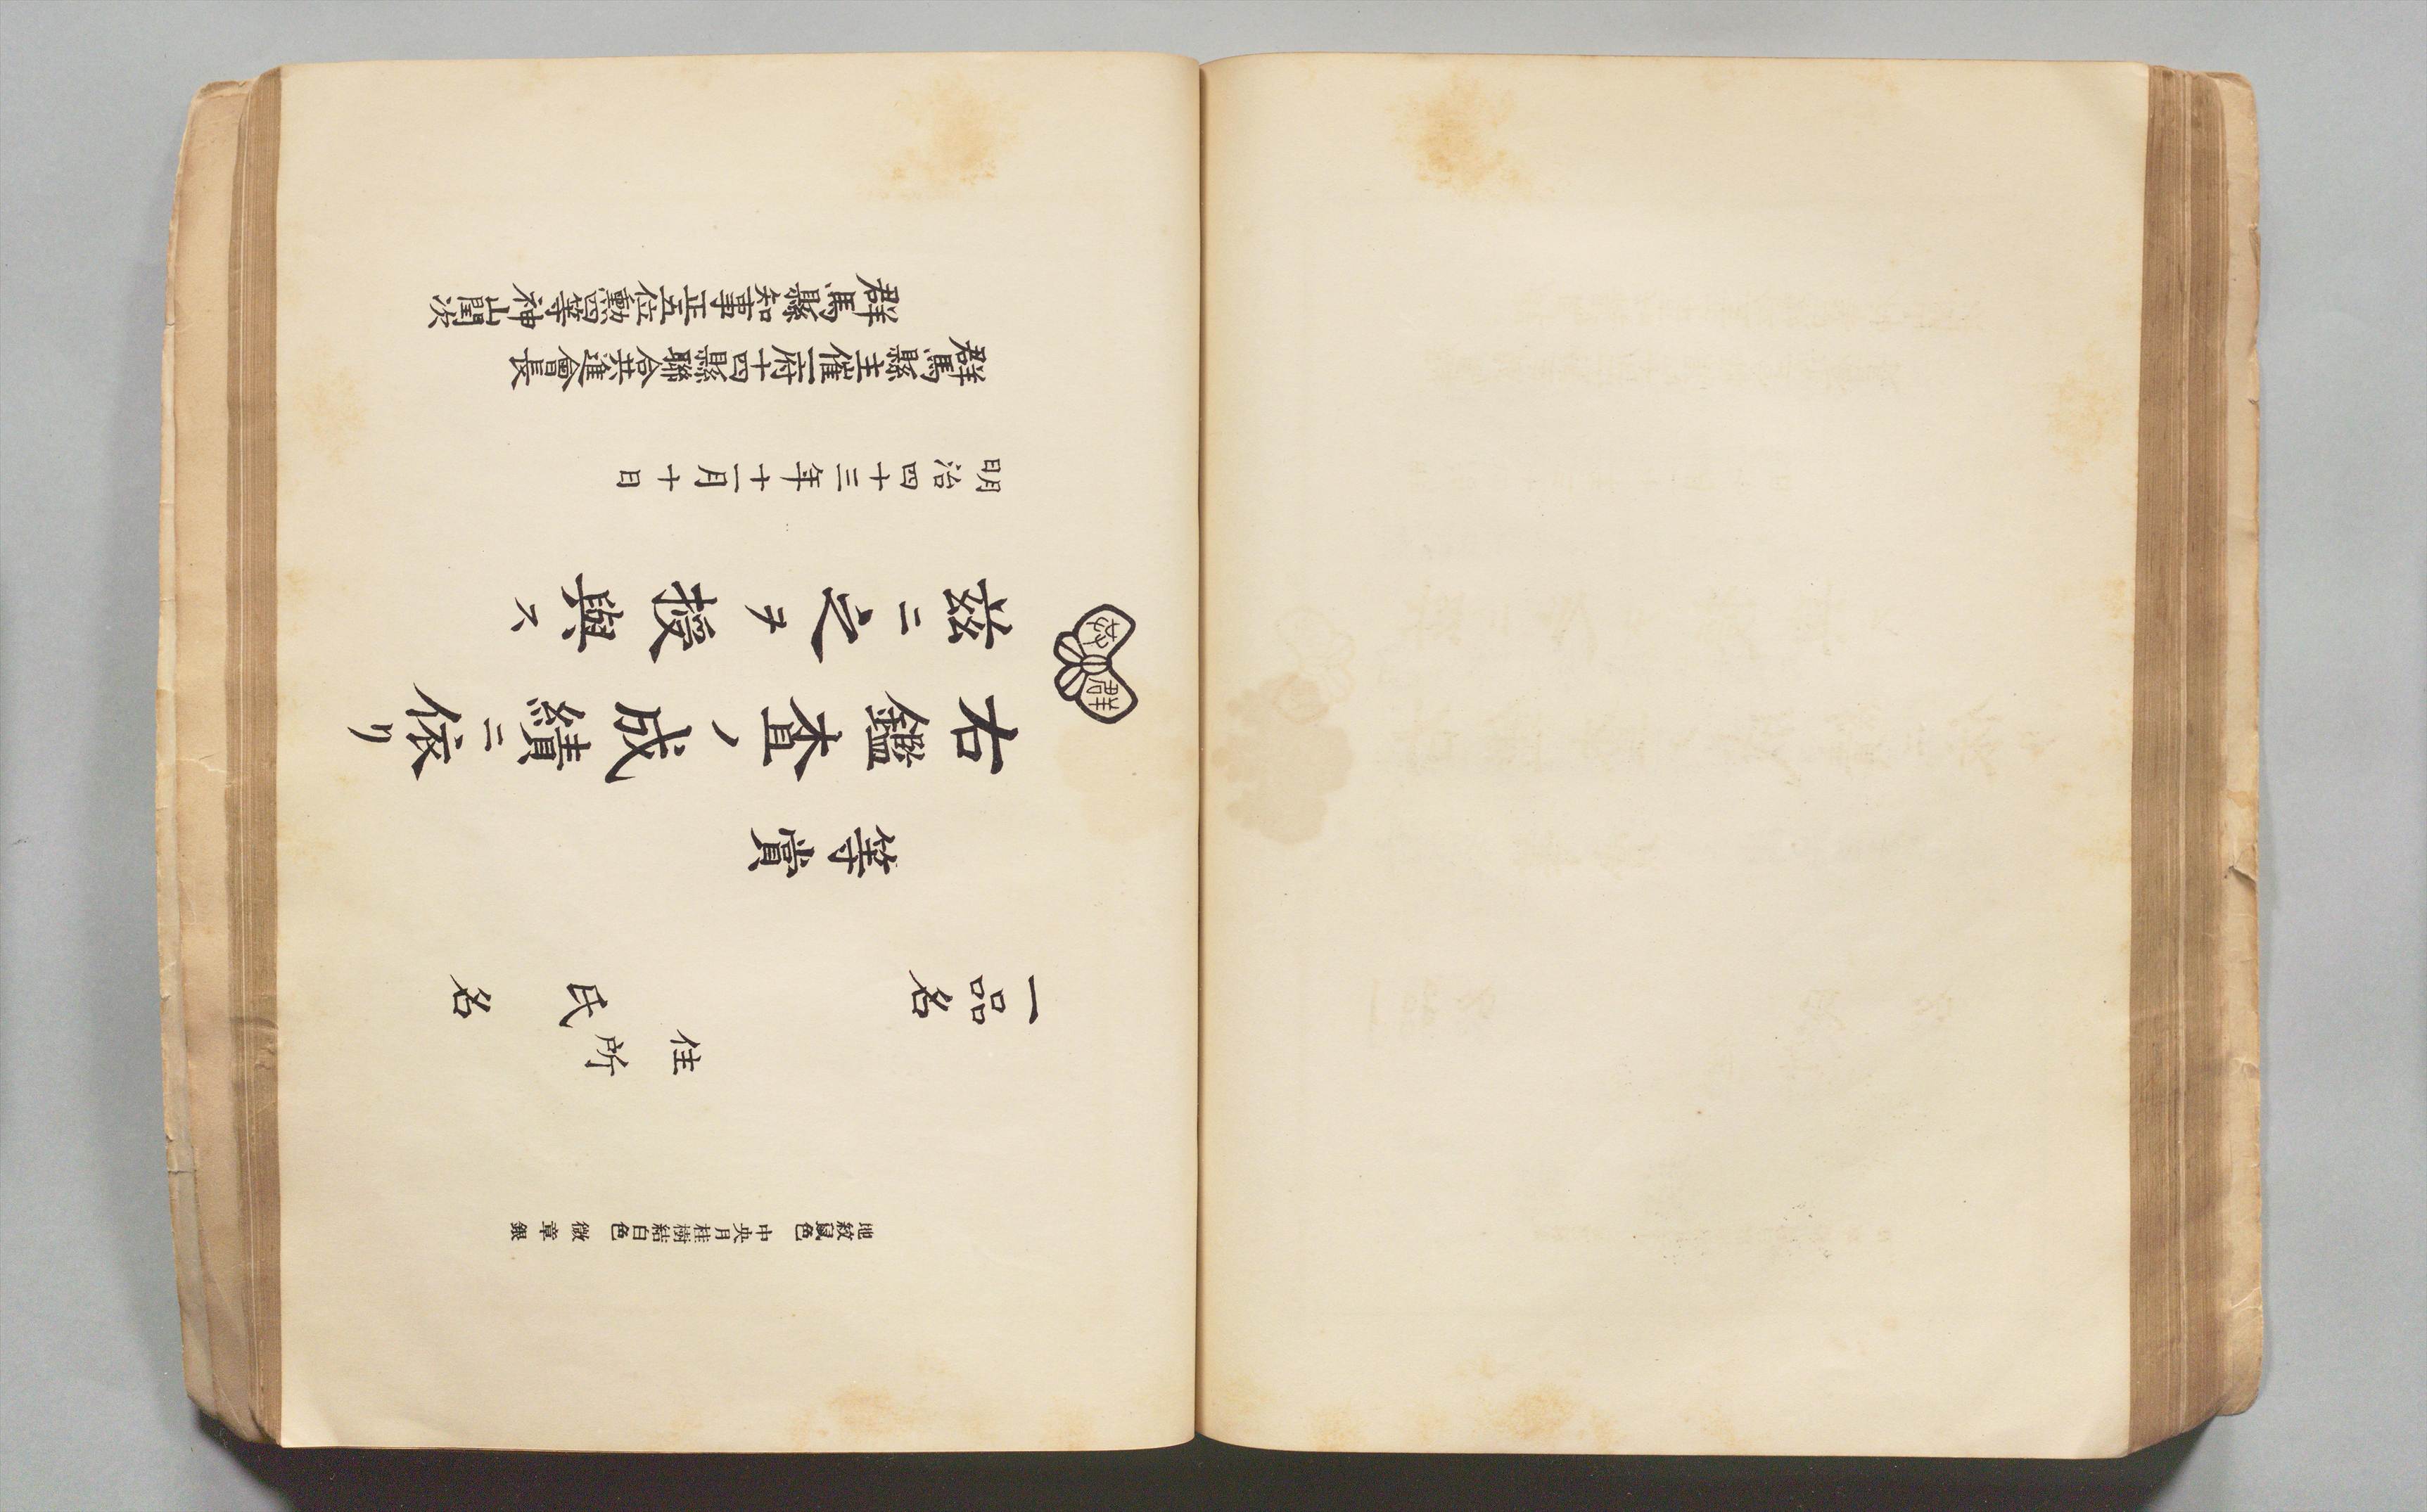 地紋鼠色 中央月桂樹結白色 徽章銀
住所
一品名 氏名
等賞
右鑑査ノ成績ニ依リ
茲ニ之ヲ授與ス
明治四十三年十一月十日
群馬縣主催一府十四縣聯合共進會長
群馬縣知事正五位勲四等神山閏次
群